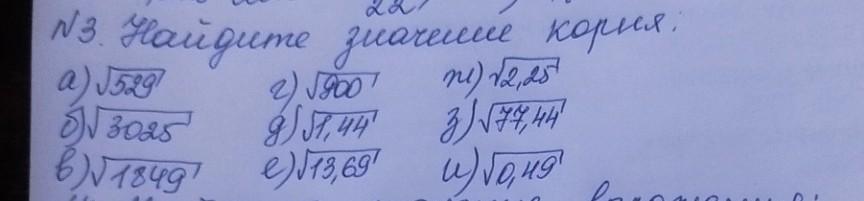 22,
№3. Найдите значение корня:
а) √529 г) √900 ж) √2,25
б) √3025 д) √1,44 з) √77,44
в) √1849 е) √13,69 и) √0,49